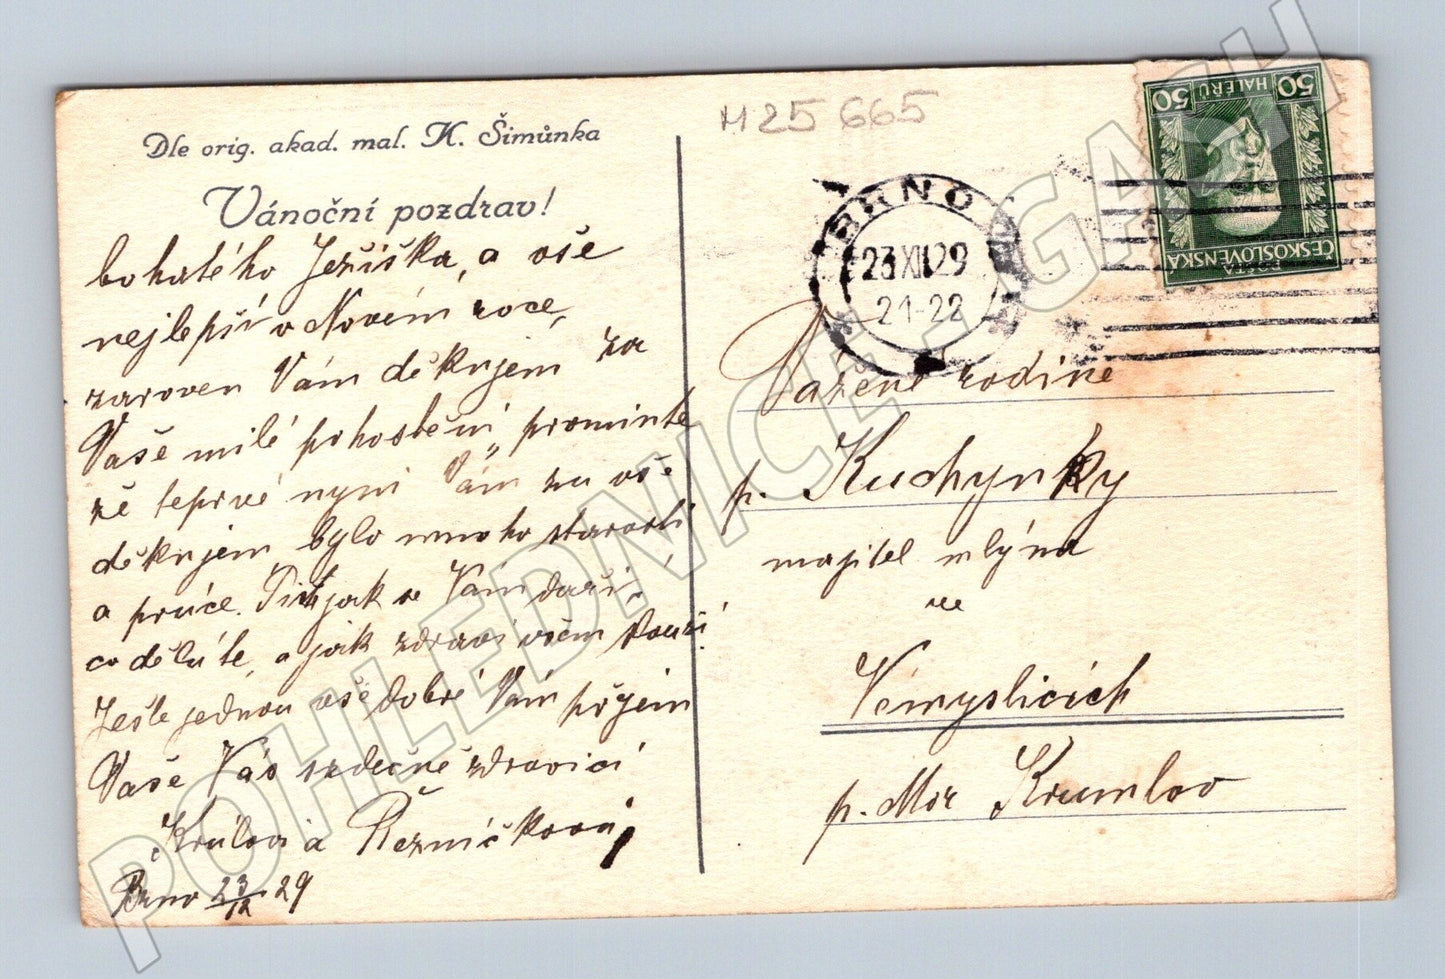 Dle orig. akad. mal. K. Šimůnka
Vánoční pozdrav!
bohatého Ježíška, a vše
nejlepší v Novém roce,
zaroven Vám děkujem za
Vaše milé pohostění, prominte
že teprvé nyni Vám za vše
děkujem, bylo mnoho starosti
a práce. jak se Vám daři,
co děláte, a jak zdravi všem slouží!
Ješte jednou vše dobré Vám přejem
Vaše Vás srdečně zdravicí
Královi a Řezníčkova,
Brno 23/12 29
M25 665
BRNO
23 XII 29
21-22
50 HALÉŘŮ 50
POŠTA
ČESKOSLOVENSKÁ
Vážené rodine
p. Kuchynky
majitel mlýna
ve
Vémyslicích
p. Mor Krumlov
POHLEDNICE-GASH